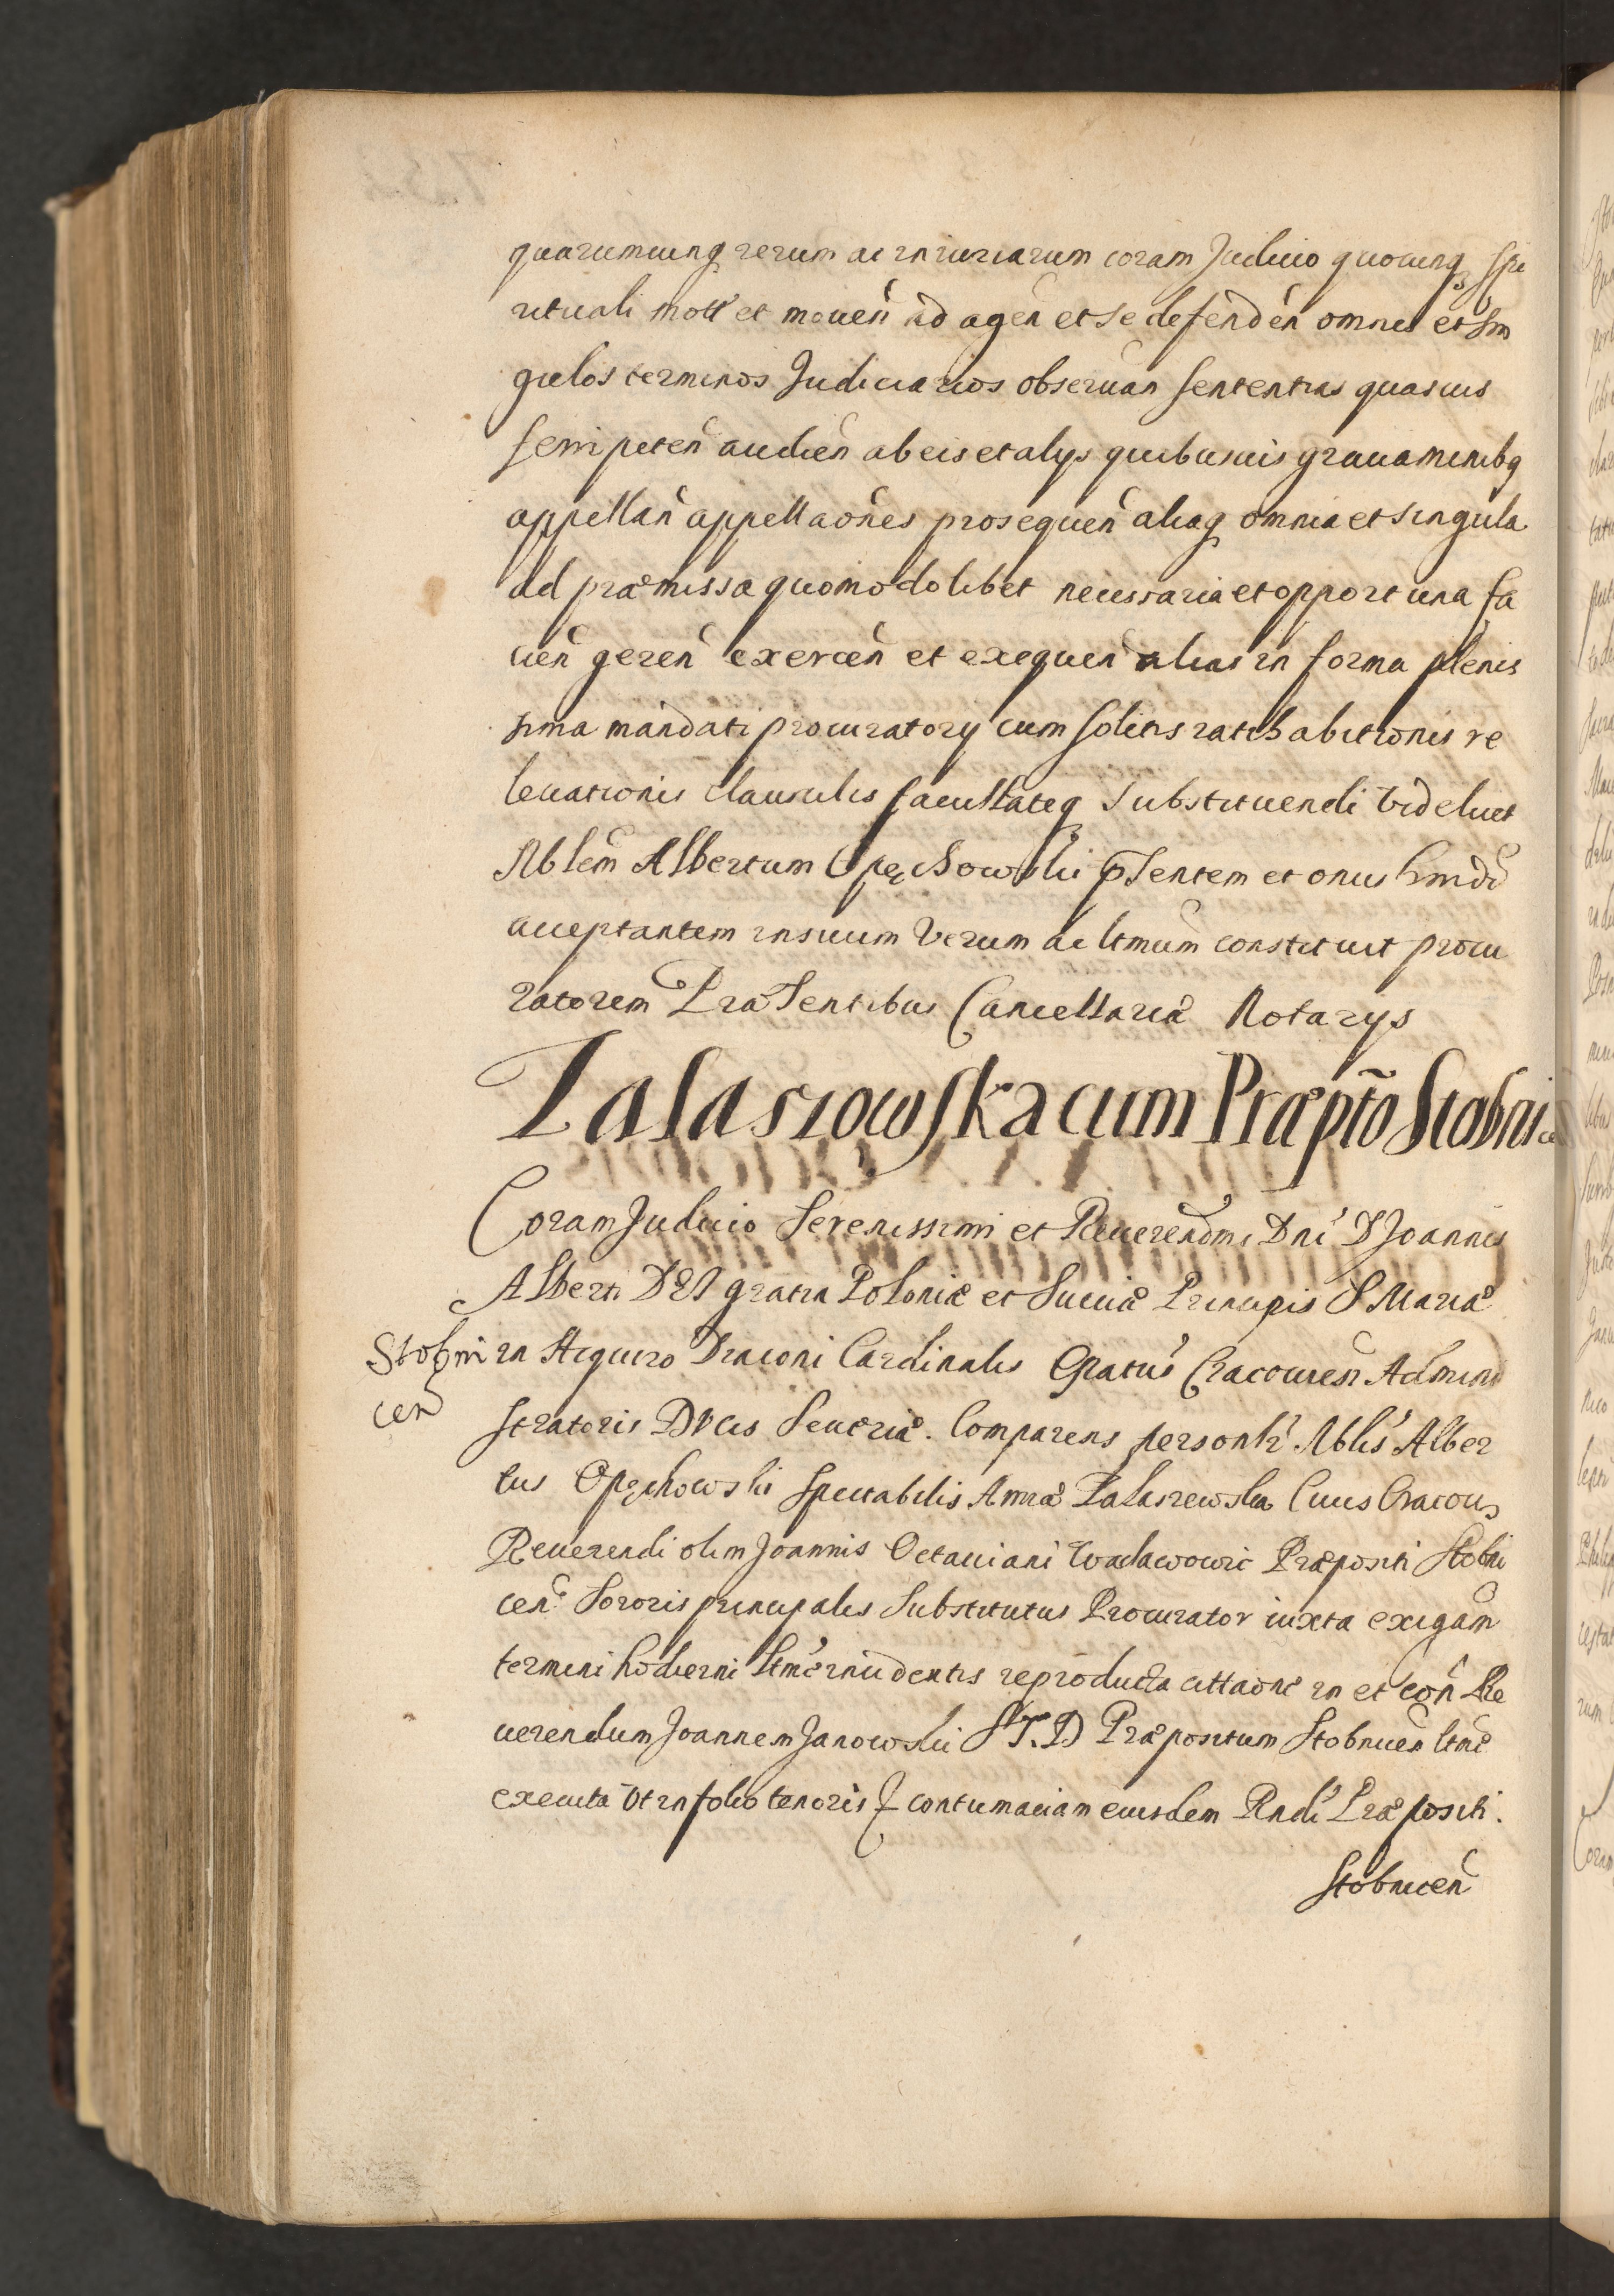 quarumcunq rerum ac iniuriarum coram Judicio quocunq Spi
rituali mott et mouen ad agen et se defenden omnes et Sin
gulos terminos Judiciarios obseruan sententias quasuis
ferri peten audien ab eis et alys quibusuis grauaminibq
appellan appellaones prosequen aliaq omnia et singula
ad præmissa quomodolibet necessaria et opportuna fa
cien geren exercen et exequen alias in forma plenis
sima mandati procuratory cum solitis ratihabitionis re
leuationis clausulis facultateq substituendi Videlicet
Nblem Albertum Opęchowski pSentem et onus hmoi
acceptantem in suum Verum ac ltmum constituit procu
ratorem PræSentibus Cancellariæ Notarys
Zalaszowska cum Præpto Stobnice
Coram Judicio Serenissimi et Reuerendmi Dni D Joannis
Alberti DEI gratia Poloniæ et Sueciæ Principis S Mariæ
Stobni
cen
in Aquiro Diaconi Cardinalis Epatus Cracouien Admini
stratoris Ducis Seueriæ. Comparens personlr Nblis Alber
tus Opęchowski Spectabilis Annæ Zalaszewska Ciuis Cracou
Reuerendi olim Joannis Octauiani Wadawowic Præpositi Stobni
cen Sororis principalis Substitutus Procurator iuxta exigam
termini hodierni ltme incidentis reproducta cittaone in et con Re
uerendum Joannem Janowski S.T.D Præpositum Stobnicen ltme
executa Vt in folio tenoris I contumaciam eiusdem Rndi Præpositi.
Stobnicen